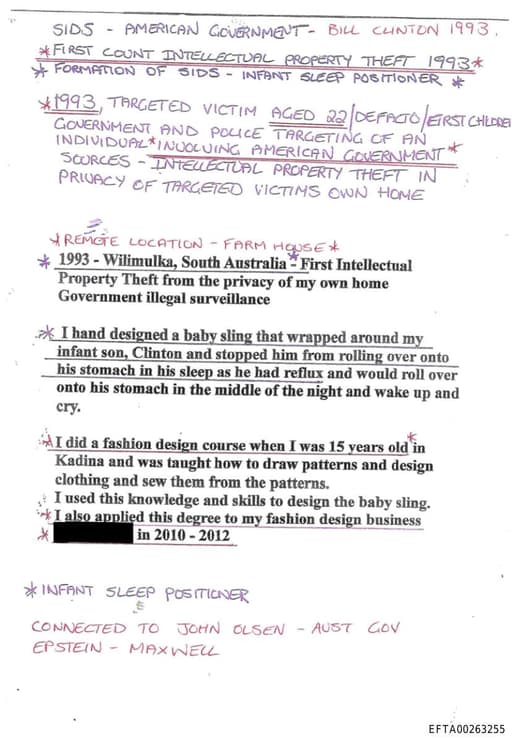 SIDS - AMERICAN GOVERNMENT - BILL CLINTON 1993.
*FIRST COUNT INTELLECTUAL PROPERTY THEFT 1993*
* FORMATION OF SIDS - INFANT SLEEP POSITIONER *
*1993, TARGETED VICTIM AGED 22/DEFACTO/FIRST CHILDREN
GOVERNMENT AND POLICE TARGETING OF AN
INDIVIDUAL*INVOLVING AMERICAN GOVERNMENT*
SOURCES - INTELLECTUAL PROPERTY THEFT IN
PRIVACY OF TARGETED VICTIMS OWN HOME
*REMOTE LOCATION - FARM HOUSE*
* 1993 - Wilimulka, South Australia - First Intellectual
Property Theft from the privacy of my own home
Government illegal surveillance
* I hand designed a baby sling that wrapped around my
infant son, Clinton and stopped him from rolling over onto
his stomach in his sleep as he had reflux and would roll over
onto his stomach in the middle of the night and wake up and
cry.
* I did a fashion design course when I was 15 years old* in
Kadina and was taught how to draw patterns and design
clothing and sew them from the patterns.
I used this knowledge and skills to design the baby sling.
* I also applied this degree to my fashion design business
* in 2010 - 2012
* INFANT SLEEP POSITIONER
CONNECTED TO JOHN OLSEN - AUST GOV
EPSTEIN - MAXWELL
EFTA00263255